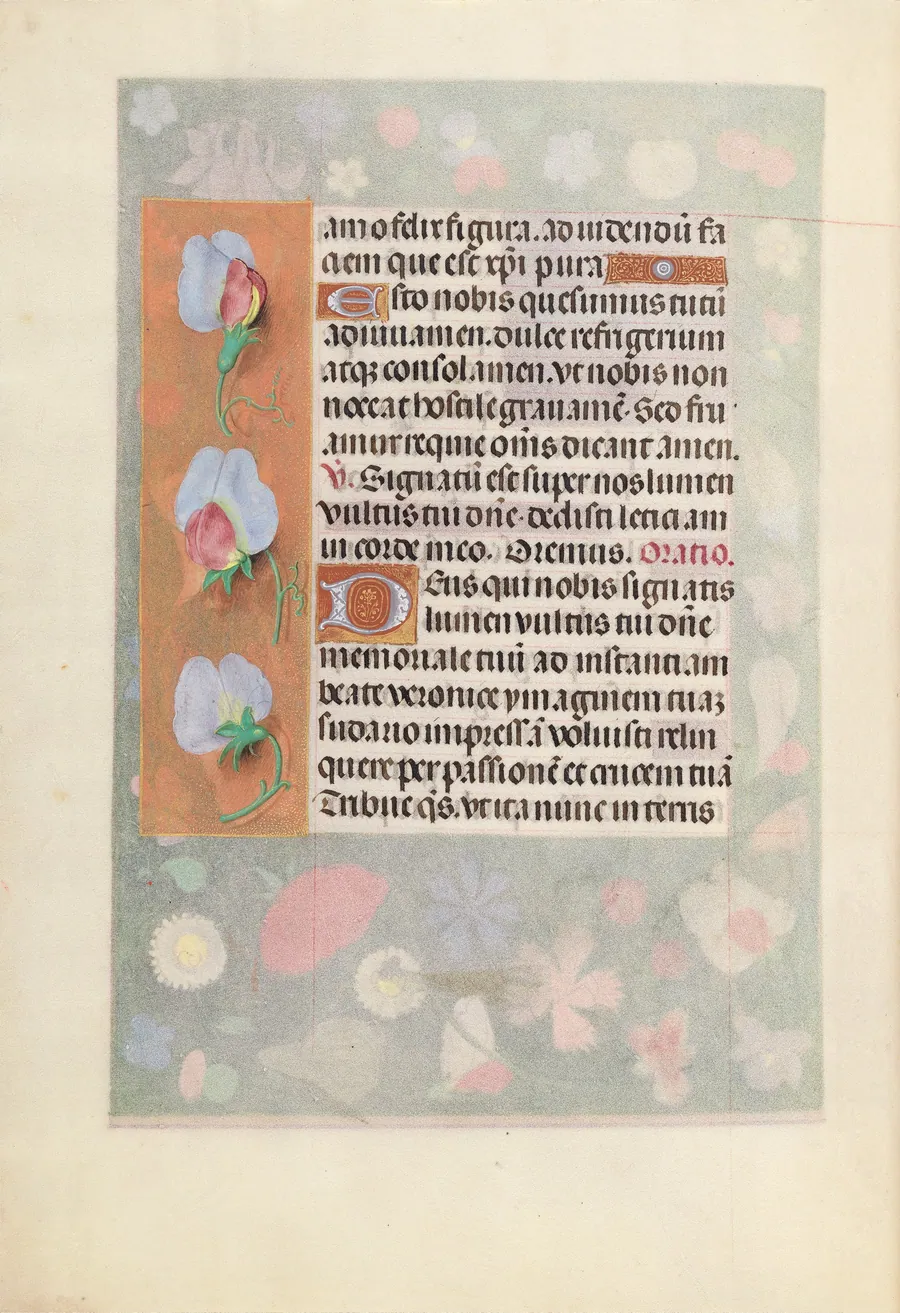 am o felix figura. ad uidendū fa
ciem que est xp̄i pura
Esto nobis quesumus tutū
adiuuamen. dulce refrigerium
atqȝ consolamen. vt nobis non
noceat hostile grauamē. Sed fru
amur requie om̄s dicant amen.
V̉. Signatū est super nos lumen
vultus tui dn̄e. dedisti leticiam
in corde meo. Oremus. Oratio.
Deus qui nobis signatis
lumen vultus tui dn̄e
memoriale tuū ad instantiam
beate veronice ymaginem tuaȝ
sudario impressā voluisti relin
quere per passionē et crucem tuā
Tribue q̄s. vt ita nunc in terris